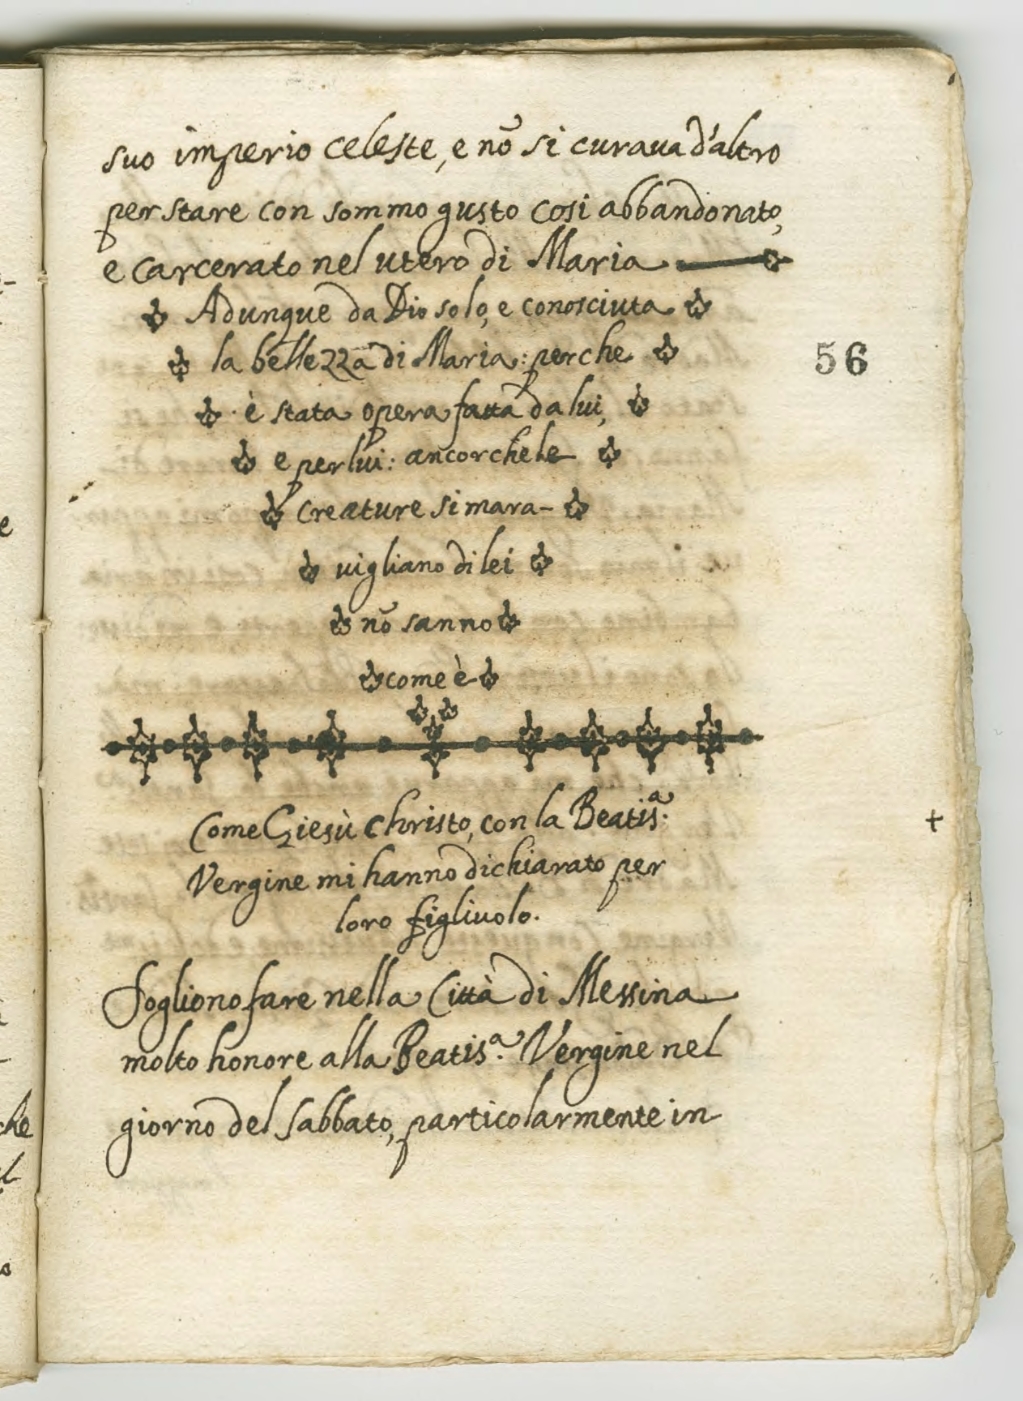 suo imperio celeste, e nõ si curaua d'altro
per stare con sommo gusto cosi abbandonato,
e carcerato nel utero di Maria
Adunque da Dio solo, e conosciuta
la bellezza di Maria: perche
56
è stata opera fatta da lui,
e per lui: ancorche le
creature si mara-
uigliano di lei
nõ sanno
come è
Come Giesù Christo, con la Beatis.ª
Vergine mi hanno dichiarato per
loro figliuolo.
Sogliono fare nella Città di Messina
molto honore alla Beatis.ª Vergine nel
giorno del Sabbato, particolarmente in